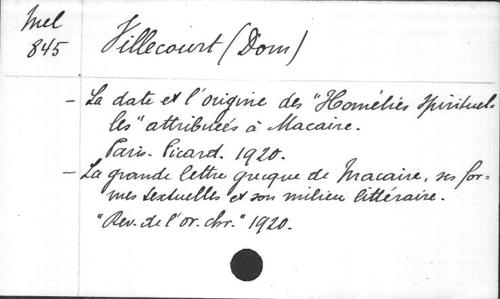 Mel
845
Villecourt (Dom)
- La date et l'origine des "Homélies spirituel-
les" attribuées à Macaire.
Paris. Picard. 1920.
- La grande lettre grecque de Macaire, ses for-
mes textuelles et son milieu littéraire.
"Rev. de l'or. chr." 1920.